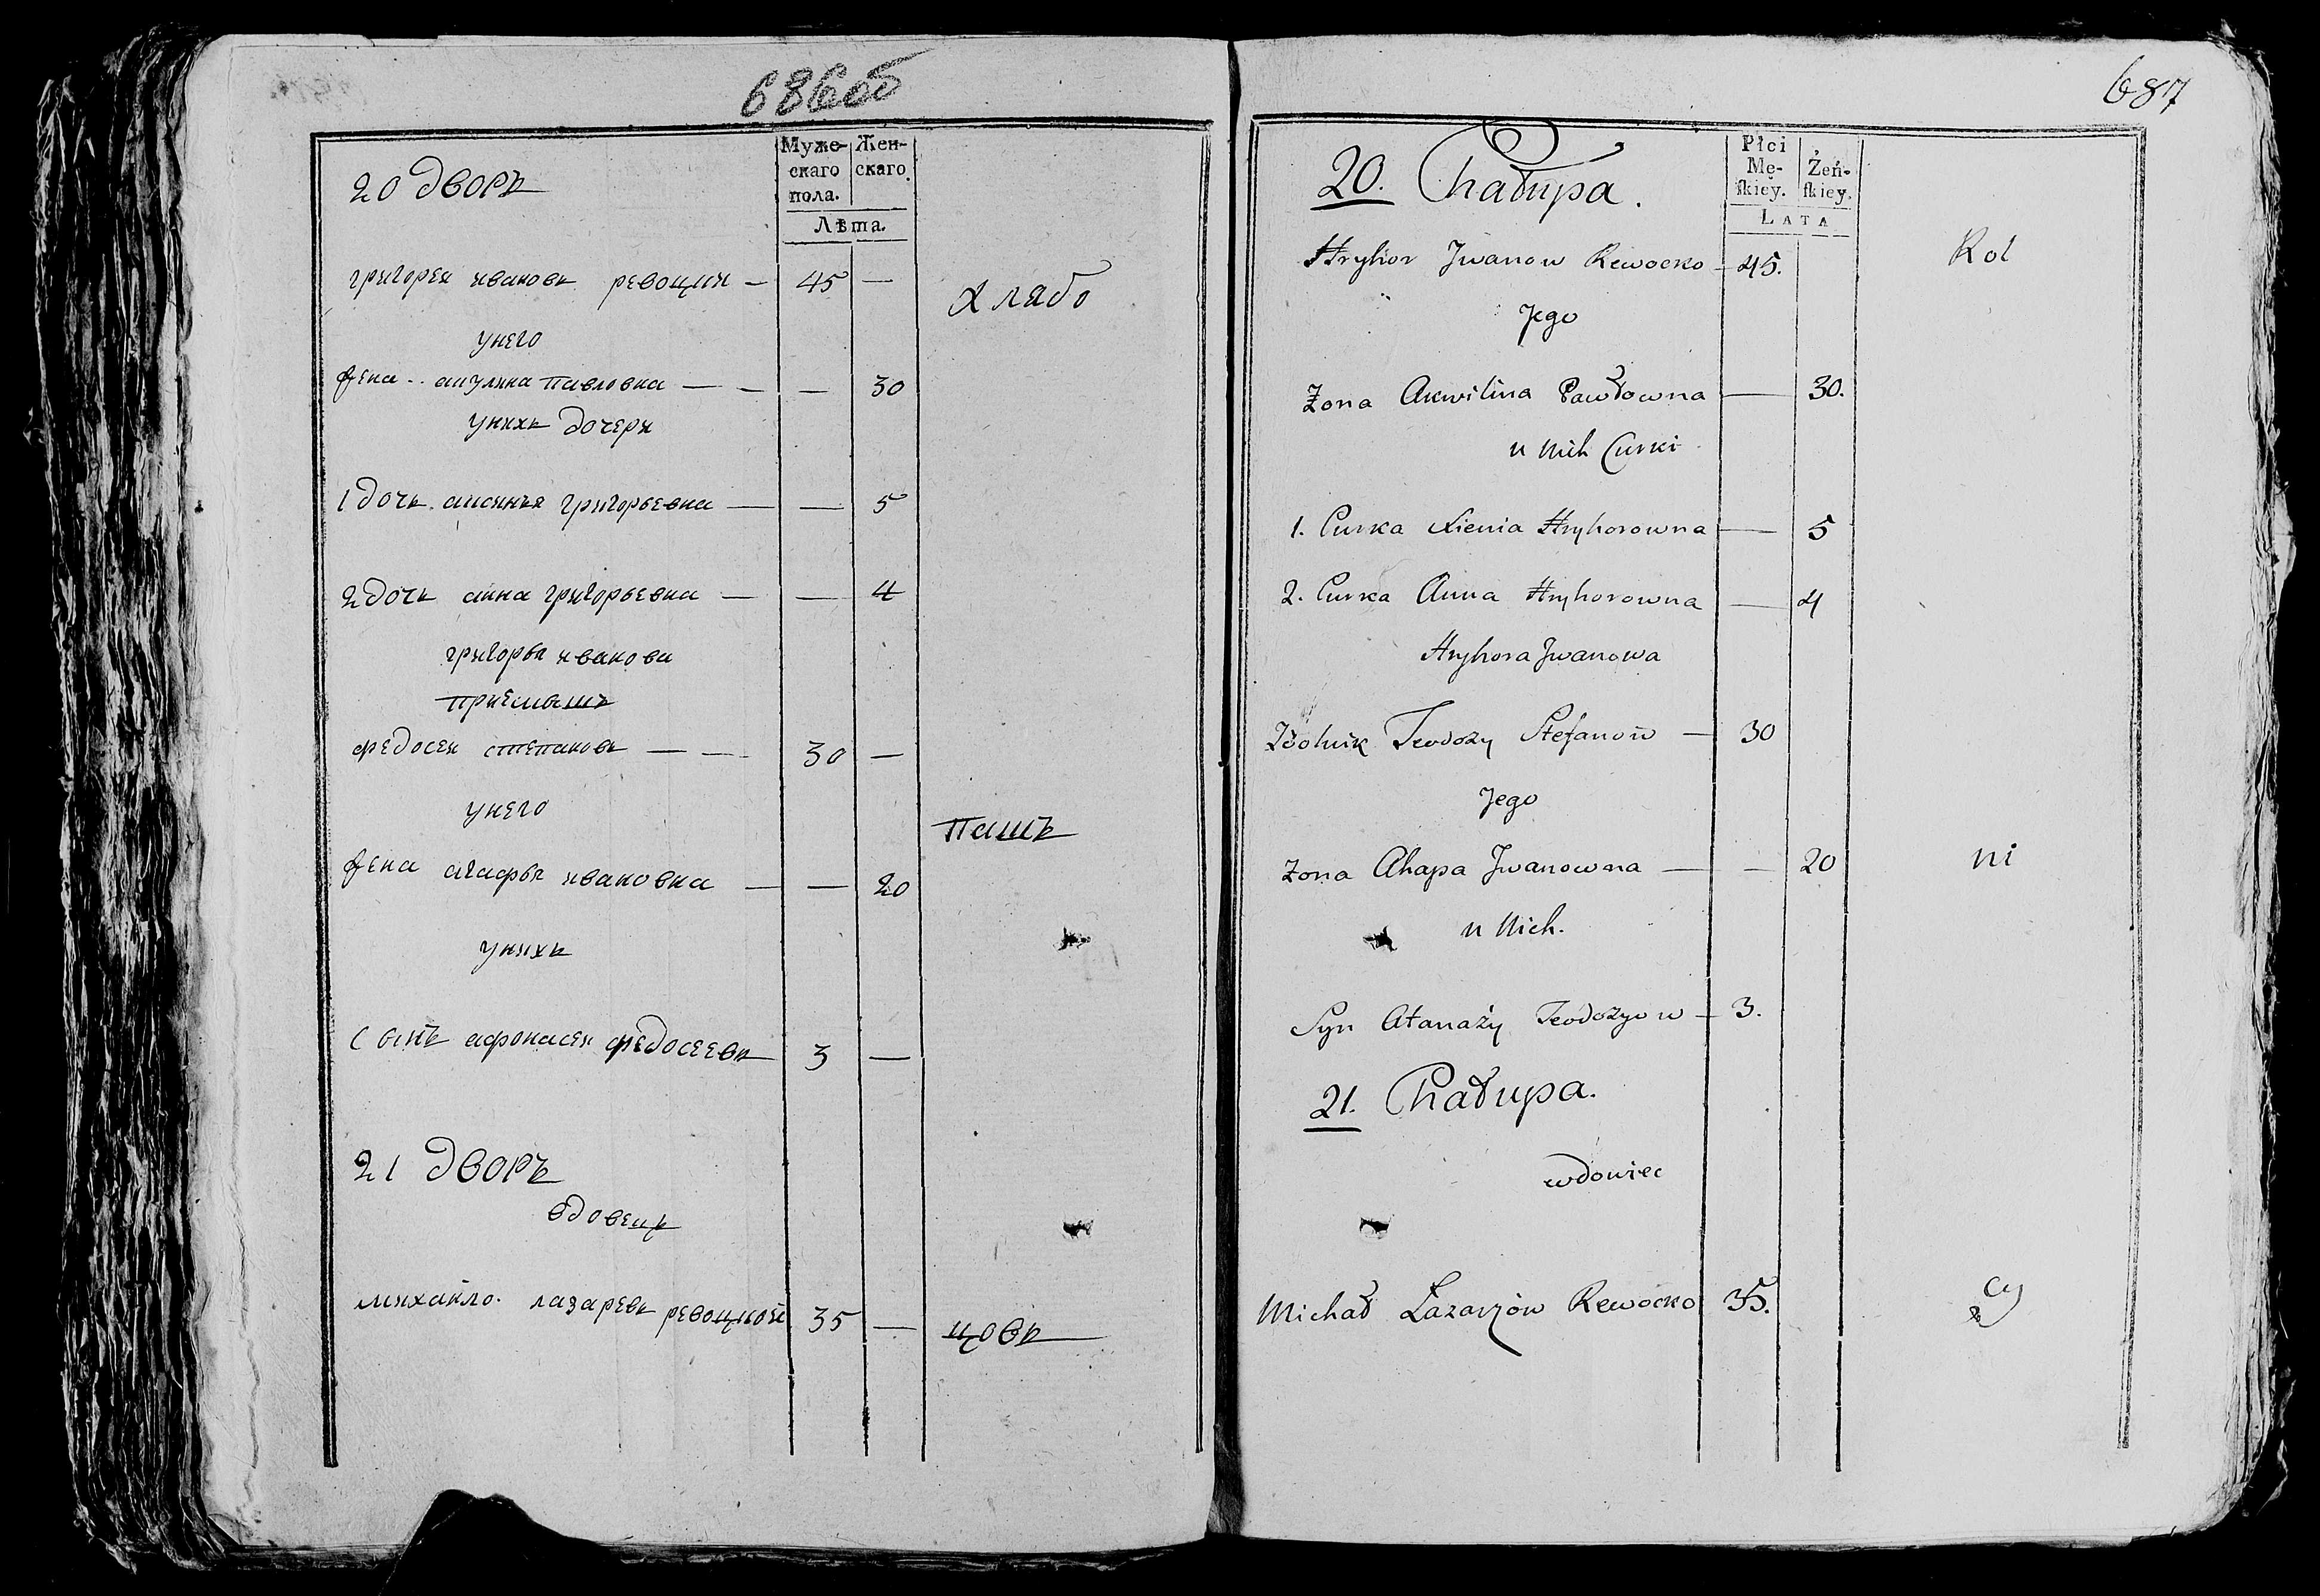 686об
Муже- Жен-
скаго скаго.
пола.
Лѣта.
20 дворъ
григорей ивановъ ревоцкий — 45 —
хлѣбо
унего
жена акулина павловна — — 30
унихъ дочери
1 дочь аксинья григорьевна — — 5
2 дочь анна григорьевна — — 4
григорья иванова
приемышъ
федосей степановъ — 30 —
унего
пашъ
жена агафья ивановна — — 20
унихъ
сынъ афонасей федосеевъ 3 —
21 дворъ
вдовецъ
михайло лазаревъ ревоцкой 35 —
цовъ
687
Płci
Mę- Żeń-
skiey. skiey.
LATA
20. Chałupa.
Hryhor Jwanow Rewocko 45.
Rol
Jego
Żona Akwilina Pawłowna — 30.
u nich Curki
1. Curka Xienia Hryhorowna — 5
2. Curka Anna Hryhorowna — 4
Hryhora Jwanowa
Teodozy Stefanow — 30
Jego
Żona Ahapa Jwanowna — — 20
ni
u Nich.
Syn Atanazy Teodozyow — 3.
21. Chałupa.
wdowiec
Michał Łazarzów Rewocko 35.
cy